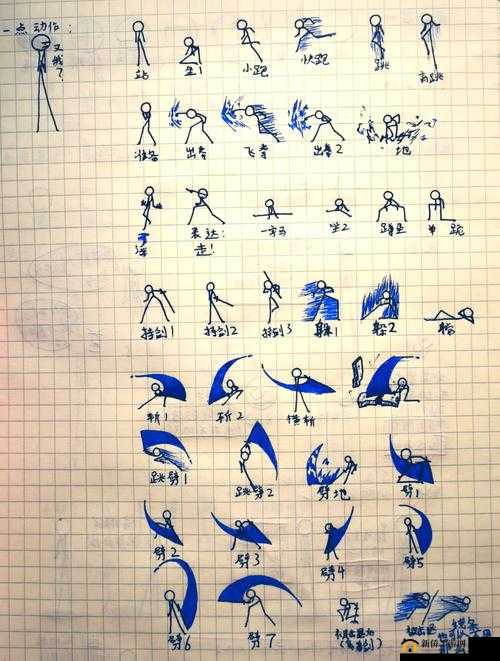 一点动作：
又饿了？
站
坐1
小跑
快跑
跳
高跳
准备
出拳
飞拳
出拳2
地
浮
表达：
走！
一字马
坐2
蹲坐
单跪
持剑1
持剑2
持剑3
躲1
躲2
躺
斩1
斩2
横斩
跳劈1
跳劈2
劈地
劈1
劈2
劈3
劈4
劈5
劈6
劈7